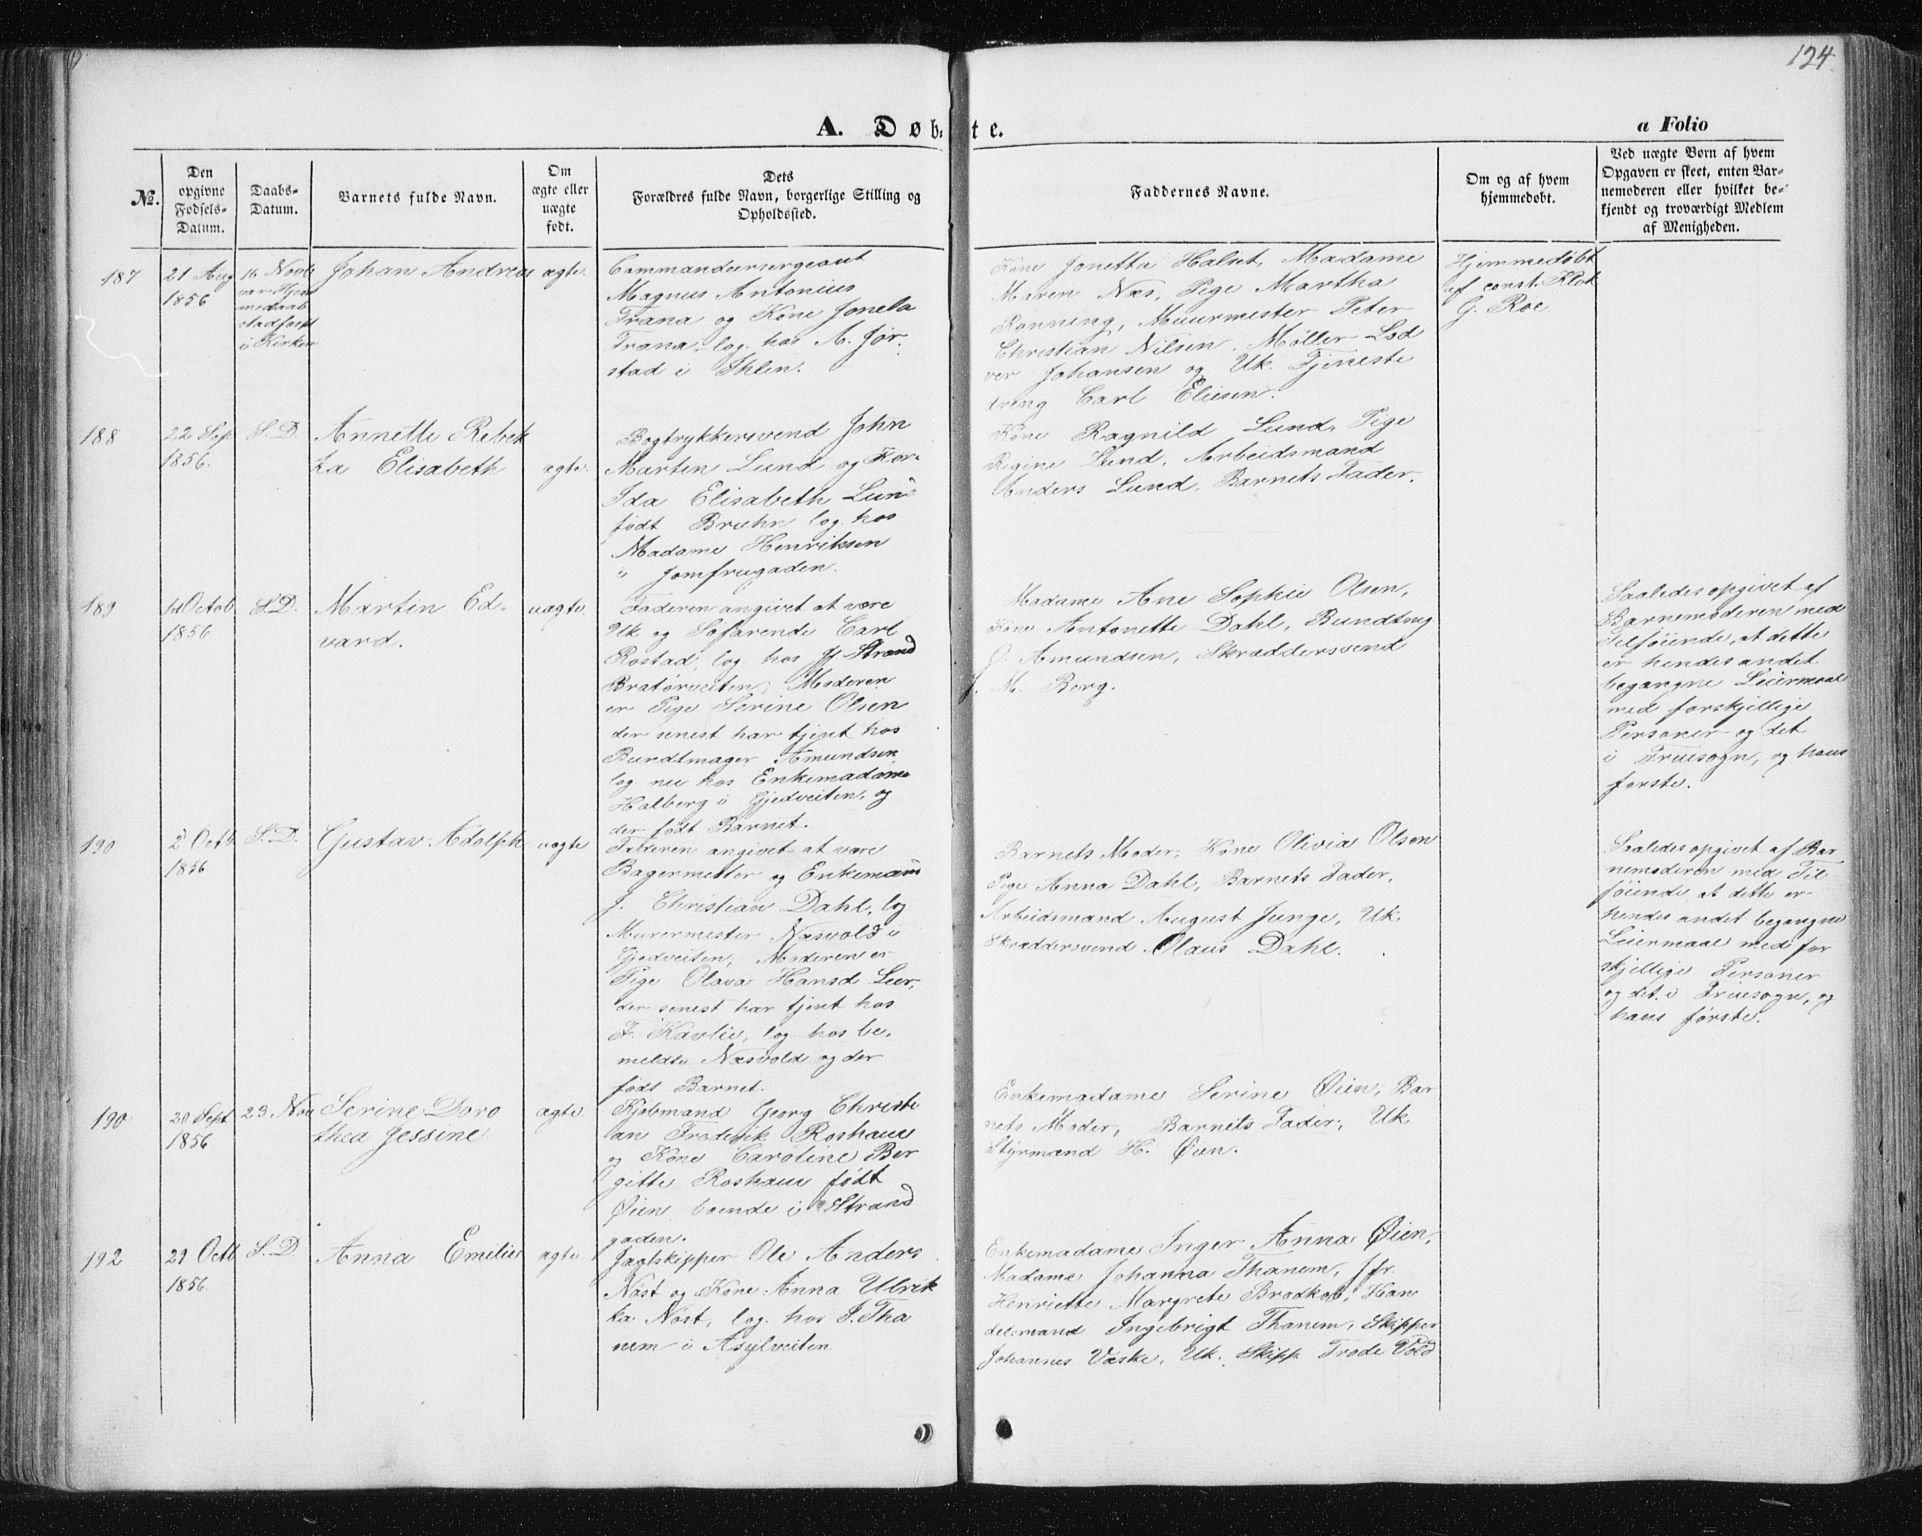 124.
A. Døb-
te.
a Folio
No.
Den
opgivne
Fødsels-
Datum.
Daabs-
Datum.
Barnets fulde Navn.
Om
ægte eller
uægte
født.
Dets
Forældres fulde Navn, borgerlige Stilling og
Opholdssted.
Faddernes Navne.
Om og af hvem
hjemmedøbt.
Ved uægte Børn af hvem
Opgaven er skeet, enten Bar-
nemoderen eller hvilket be-
kjendt og troværdigt Medlem
af Menigheden.
187
21 Aug
1856
16 Novb
var Hjem
medaab
stadfæst
i Kirken
Johan Andreas
ægte.
Commandeersergeant
Magnus Antonius
Trana og Kone Joneta
Trana, log. hos A. Jør-
stad i Ihlen.
Kone Jonetta Halset, Madame
Maren Næs, Pige Martha
Rønning, Muurmester Peter
Christian Nilsen, Møller Lod
ver Johansen og Uk. Tjeneste
dreng Carl Eliesen.
Hjemmedøbt
af const. Klok
G. Roe
188
22 Sep
1856.
S. D.
Annette Rebek
ka Elisabeth
ægte.
Bogtrykkersvend John
Martin Lund og Kone
Ida Elisabeth Lund
født Bruhn log. hos
Madame Henriksen
i Jomfrugaden.
Kone Ragnild Lund, Pige
Regine Lund, Arbeidsmand
Anders Lund, Barnets Fader.
189
14 Octob
1856
S. D.
Martin Ed-
vard.
uægte.
Faderen angivet at være
Uk og Søfarende Carl
Rostad, log. hos Strand
Bratørveiten, Moderen
er Pige Serine Olsen
der senest har tjent hos
Bundtmager Amundsen
log nu hos Enkemadame
Halberg i Gjedveiten, og
der født Barnet.
Madame Ane Sophie Olsen,
Kone Antonette Dahl, Bundtmg
O. Amundsen, Skræddersvend
J. M. Berg.
Saaledes opgivet af
Barnemoderen med
Tilføiende, at dette
er hendes andet
begangne Leiermaal
med forskjellige
Personer og det
i Fruesogn, og hans
første.
190
2 Octb.
1856
S. D.
Gustav Adolph
uægte
Faderen angivet at være
Bagermester og Enkemand
J. Christian Dahl, log
Murermester Næsvold i
Gjedveiten, Moderen er
Pige Olava Hansd. Leer,
der senest har tjent hos
F. Kavlie, log hos be-
meldte Næsvold og der
født Barnet.
Barnets Moder, Kone Olivia Olsen
Pige Anna Dahl, Barnets Fader,
Arbeidsmand August Junge, Uk.
Skræddersvend Olaus Dahl.
Saaledes opgivet af Bar
nemoderen med Til
føiende, at dette er
hendes andet begangne
Leiermaal med for
skjellige Personer
og det i Fruesogn, og
hans første.
190
20 Sept
1856
23 Nov
Serine Doro
thea Jessine
ægte
Kjøbmand Georg Christi
an Frederik Roshauw
og Kone Caroline Ber
gitte Roshauw født
Øien, boende i Strand
gaden.
Enkemadame Serine Øien, Bar
nets Moder, Barnets Fader, Uk
Styrmand H. Øien.
192
29 Octb
1856.
S. D.
Anna Emilie
ægte
Jagtskipper Ole Anders
Nøst og Kone Anna Ulrik
ka Nøst, log. hos J. Tha
nem i Asylveiten
Enkemadame Inger Anna Øien,
Madame Johanna Thanem, Jfr.
Henriette Margrete Brodkob, Han
delsmand Ingebrigt Thanem, Skipper
Johannes Væske, Uk. Skipp Frode Vold